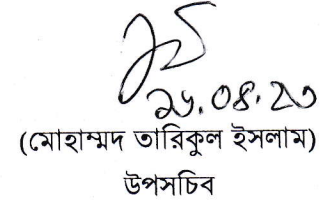 ২৬.০৪.২৩
(মোহাম্মদ তারিকুল ইসলাম)
উপসচিব